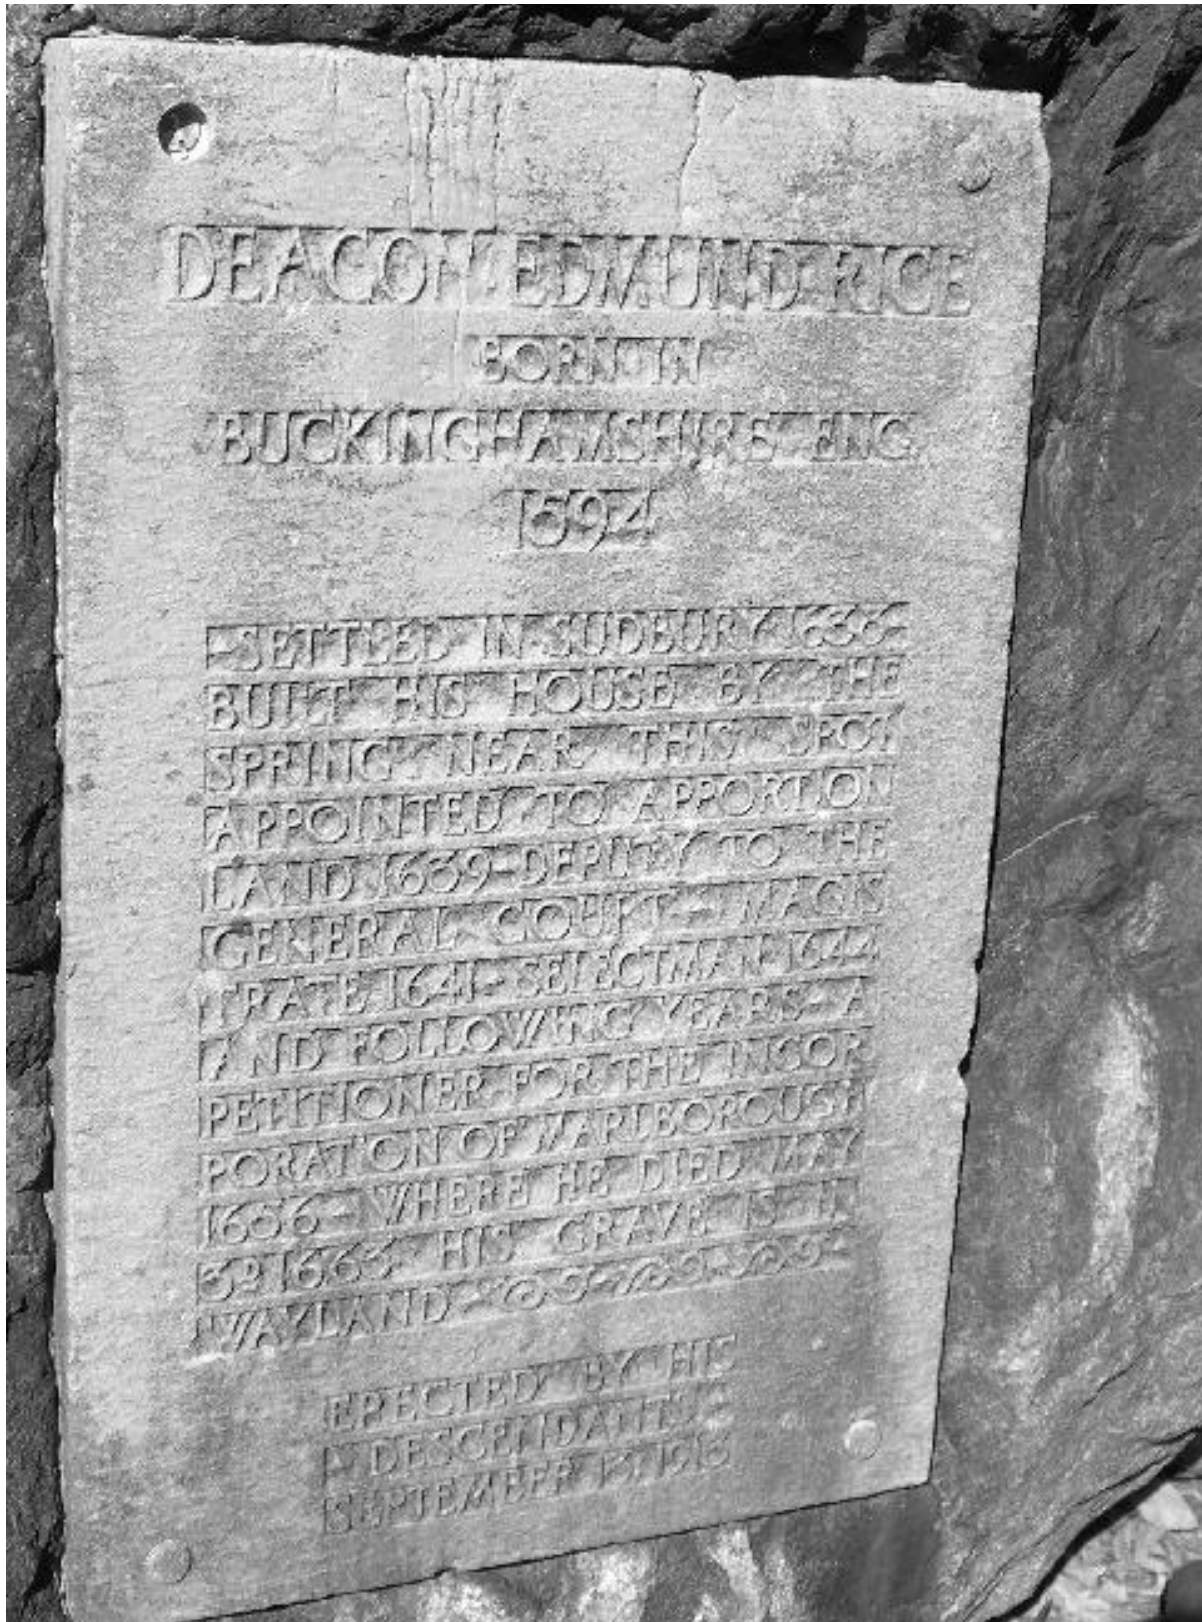 DEACON EDMUND RICE
BORN IN
BUCKINGHAMSHIRE ENG
1594
-SETTLED IN SUDBURY 1636-
BUILT HIS HOUSE BY THE
SPRING NEAR THIS SPOT
APPOINTED TO APPORTION
LAND 1639-DEPUTY TO THE
GENERAL COURT - MAGIS
TRATE 1641- SELECTMAN 1644
AND FOLLOWING YEARS- A
PETITIONER FOR THE INCOR
PORATION OF MARLBOROUGH
1656 - WHERE HE DIED MAY
3D 1663 HIS GRAVE IS IN
WAYLAND -
ERECTED BY HIS
- DESCENDANTS -
SEPTEMBER 13, 1913